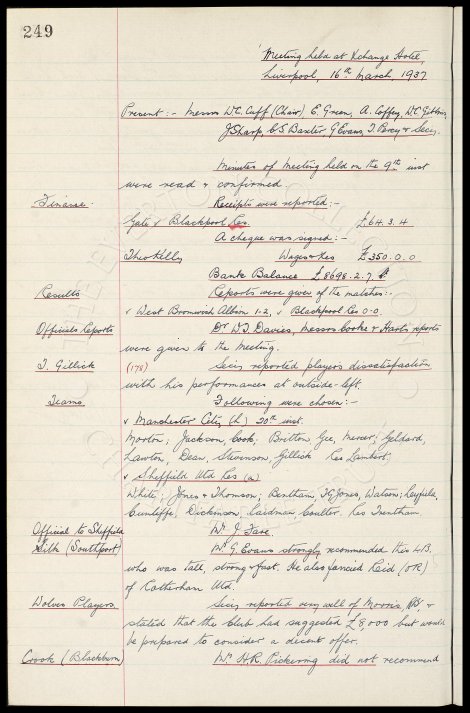 249
Meeting held at Xchange Hotel,
Liverpool, 16th March 1937
Present :- Messrs W.C. Cuff (Chair) E. Green, A. Coffey, W.C. Gibbins,
J. Sharp, C.S. Baxter, G Evans, T. Percy & Secy.
Minutes of Meeting held on the 9th inst
were read & confirmed
Finance. Receipts were reported :-
Gate v Blackpool Res. £64. 3. 4
A cheque was signed :-
Theo Kelly Wages & Res £350. 0. 0
Bank Balance £8698. 2. 7.
Results Reports were given of the matches :-
v West Bromwich Albion 1-2, v Blackpool Res 0-0.
Officials Reports Dr W.J. Davies, Messrs Cooke & Hart's reports
were given to the Meeting.
T. Gillick (178) Secy reported players dissatisfaction
with his performances at outside-left.
Teams Following were chosen :-
v Manchester City (h) 20th inst.
Morton; Jackson, Cook; Britton Gee, Mercer; Geldard,
Lawton, Dean, Stevenson, Gillick Res Lambert.
v Sheffield Utd Res (a)
White; Jones & Thomson; Bentham T.G. Jones, Watson; Leyfield,
Cunliffe, Dickinson, Laidman Coulter. Res Trentham.
Official to Sheffield Mr J. Fare.
Silk (Southport) Mr G. Evans strongly recommended this LHB.
who was tall, strong & fast. He also fancied Reid (OR)
of Rotherham Utd.
Wolves Players. Secy reported very well of Morris, &
stated that the club had suggested £8000 but would
be prepared to consider a decent offer.
Crook (Blackburn) Mr H.R. Pickering did not recommend